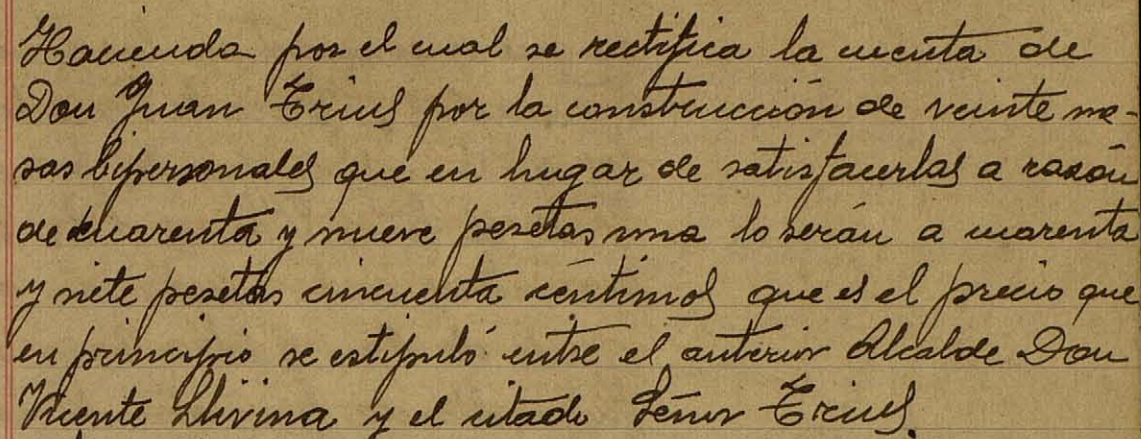 Hacienda por el cual se rectifica la cuenta de
Don Juan Trius por la construcción de veinte me-
sas bipersonales que en lugar de satisfacerlas a razón
de cuarenta y nueve pesetas una lo serán a cuarenta
y siete pesetas cincuenta céntimos que es el precio que
en principio se estipuló entre el anterior Alcalde Don
Vicente Llivina y el citado Señor Trius.